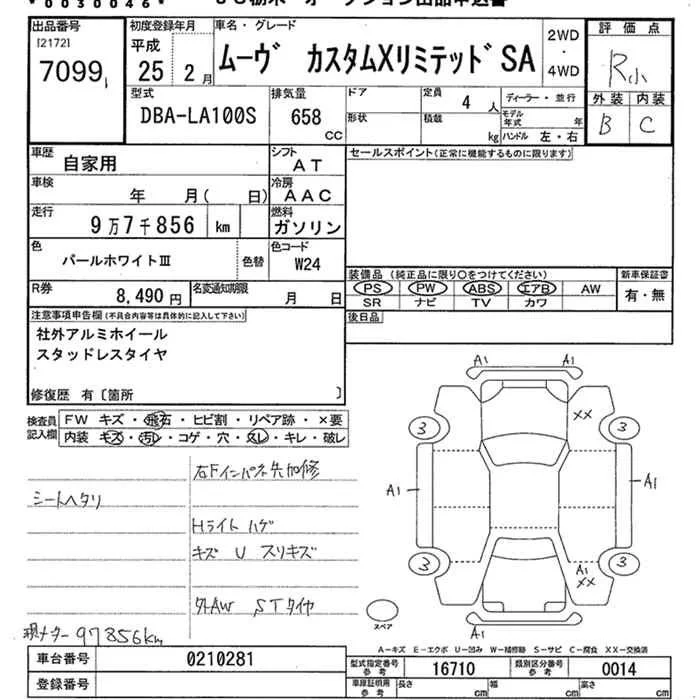 0030046
JU栃木 オークション出品申込書
出品番号
[2172]
7099
初度登録年月
平成
25 2月
車名・グレード
ムーヴ カスタムXリミテッド SA
2WD
・
4WD
評価点
R小
外装 内装
B C
型式
DBA-LA100S
排気量
658
CC
ドア
形状
定員
4 人
積載
kg
ディーラー・並行
モデル年式 年
ハンドル 左・右
車歴
自家用
シフト
AT
セールスポイント(正常に機能するものに限ります)
車検
年 月( 日)
冷房
AAC
走行
9万7千856 km
燃料
ガソリン
色
パールホワイトIII
色替
色コード
W24
装備品 (純正品に限り○をつけてください)
PS PW ABS エアB AW
SR ナビ TV カワ
新車保証書
有・無
R券
8,490 円
名変通知期限
月 日
後日品
注意事項申告欄(不具合内容等は具体的に記入して下さい)
社外アルミホイール
スタッドレスタイヤ
修復歴 有〔箇所 〕
検査員
記入欄
FW キズ・飛石・ヒビ割・リペア跡・×要
内装 キズ・汚レ・コゲ・穴・スレ・キレ・破レ
右Fインパネ先加修
シートヘタリ
Hライト ハゲ
キズ U スリキズ
外AW STタイヤ
現メーター97856km
A1 A1
XX
3 3
A1 A1
3 3
A1
XX
A1
スペア
A-キズ E-エクボ U-凹み W-補修跡 S-サビ C-腐食 XX-交換済
車台番号
0210281
登録番号
型式指定番号
参考
16710
類別区分番号
参考
0014
車庫証明用
参考
長さ cm 幅 cm 高さ cm